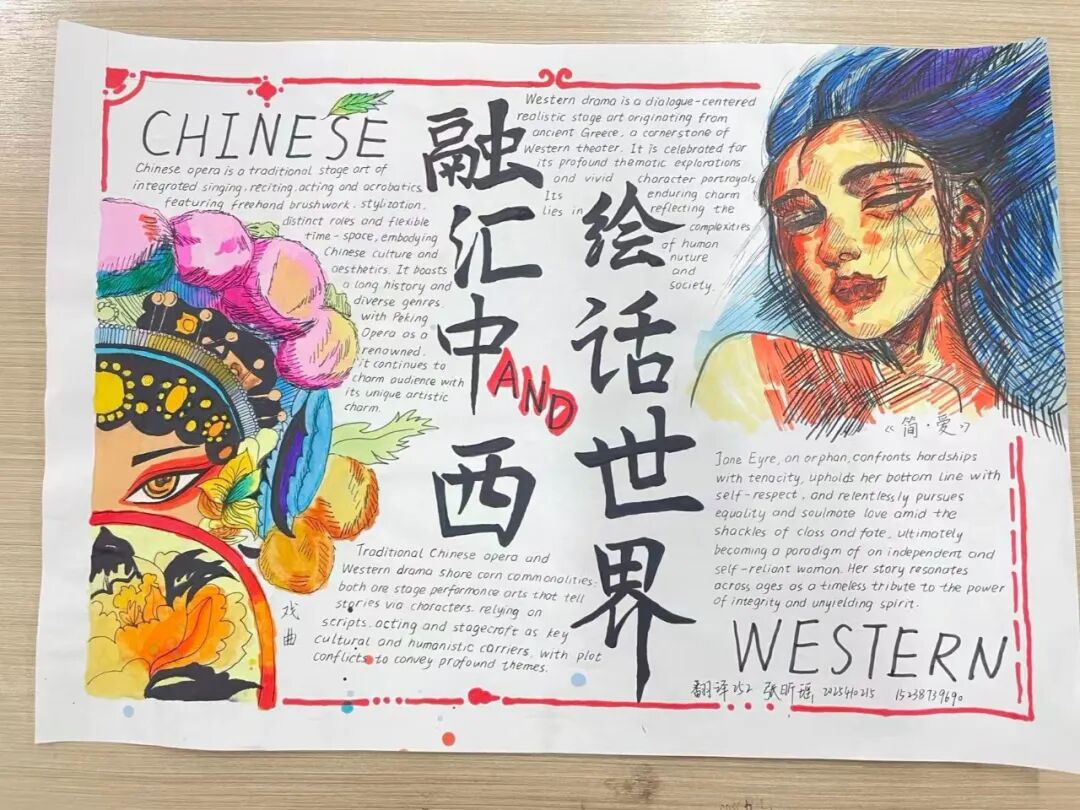 CHINESE
Chinese opera is a traditional stage art of
integrated singing, reciting, acting and acrobatics,
featuring freehand brushwork, stylization,
distinct roles and flexible
time-space, embodying
Chinese culture and
aesthetics. It boasts
a long history and
diverse genres.
with Peking
Opera as a
renowned.
it continues to
charm audience with
its unique artistic
charm.
融汇中西
AND
绘话世界
Western drama is a dialogue-centered
realistic stage art originating from
ancient Greece, a cornerstone of
Western theater. It is celebrated for
its profound thematic explorations
and vivid character portrayals
Its enduring charm
lies in reflecting the
complexities
of human
nuture
and
society.
《简·爱》
Jane Eyre, an orphan, confronts hardships
with tenacity, upholds her bottom line with
self-respect, and relentlessly pursues
equality and soulmate love amid the
shackles of class and fate, ultimately
becoming a paradigm of an independent and
self-reliant woman. Her story resonates
across ages as a timeless tribute to the power
of integrity and unyielding spirit.
戏曲
Traditional Chinese opera and
Western drama share corn commonalities:
both are stage performance arts that tell
stories via characters, relying on
scripts, acting and stagecraft as key
cultural and humanistic carriers, with plot
conflicts to convey profound themes.
WESTERN
翻译252 张昕瑶 2025410215 15238739690